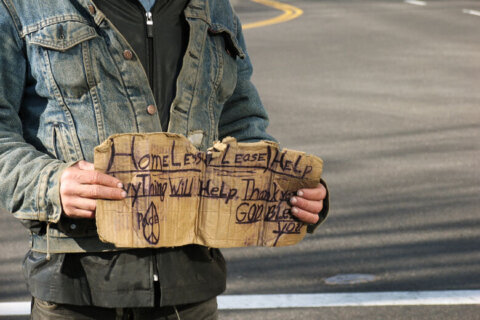 HomeLess PLease HeLp
nyThing WiLL HeLp. Thank you
GOD BLess
you